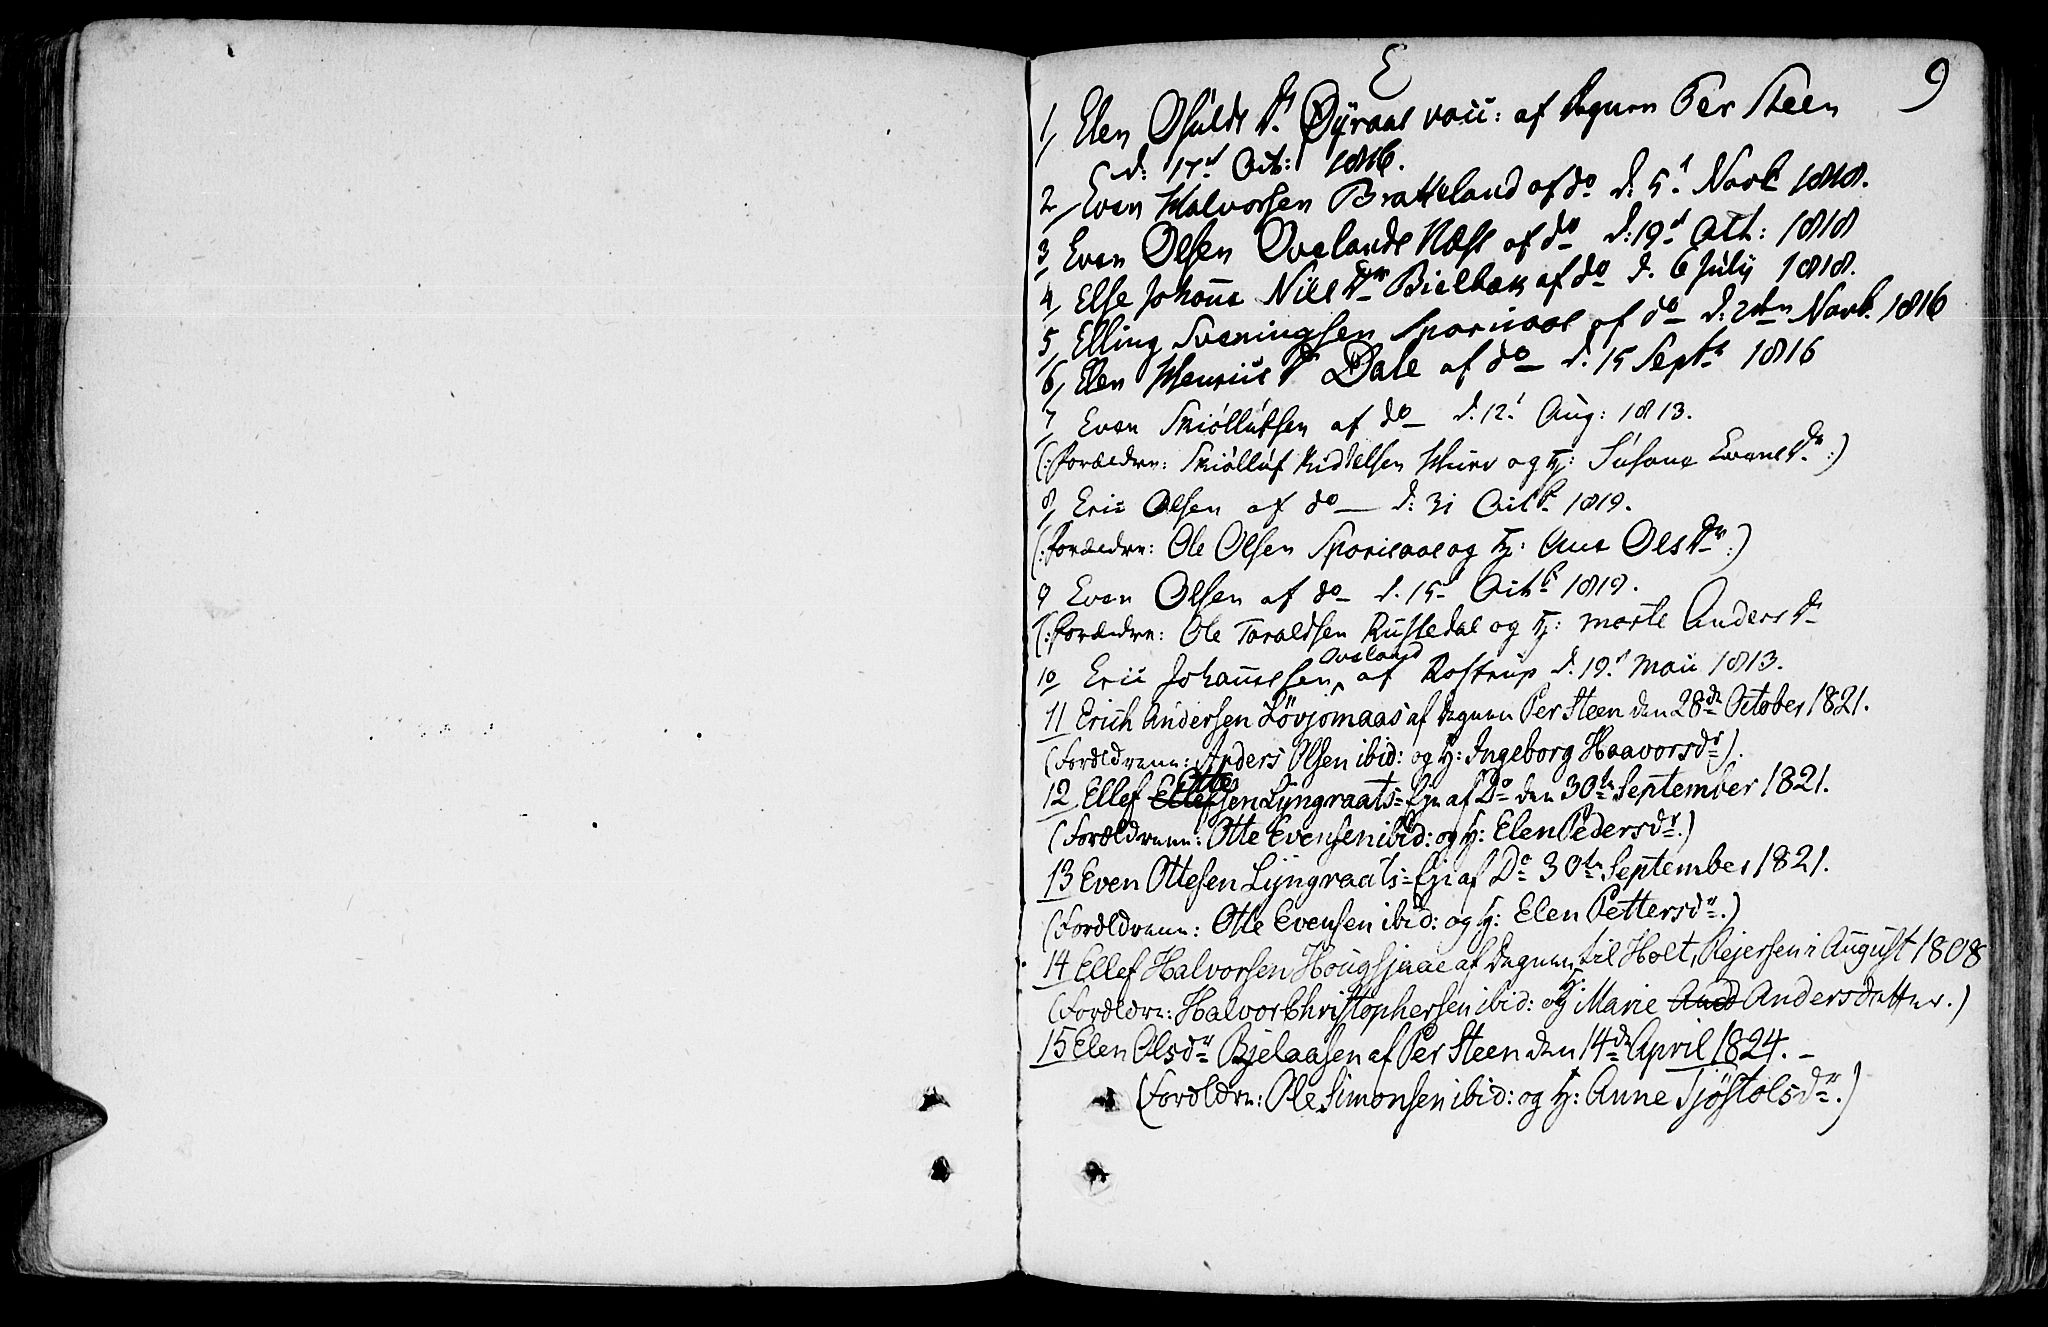 E
9
1, Elen Osulds dr. Øÿraas vacc: af degnen Per Steen
d: 17d Oct: 1816.
2, Even Halvorsen Bratteland af do d. 5t Novb 1818.
3, Even Olsen Ovelands Næss af do d: 19d Oct: 1818
4, Else Johane Niels dr Bielbæk af do d. 6 July 1818.
5, Elling Sveningsen af do d. 2den Novb. 1816
6, Elen dr Dale af do d. 15 Septr 1816
7, Even Skiöllufsen af do d. 12t Aug: 1813.
(: Forældre: Skiölluf Kiddelsen og H: Susane Evens dr :)
8, Eric Olsen af do d: 31 Octbr 1819.
(: Forældre: Ole Olsen og H: Ane Ols dr :)
9 Even Olsen af do d. 15d Octbr 1819.
(: Forældre: Ole Taraldsen Rustedal og H: Marte Anders dr
Oveland
10 Eric Johannessen af Rostrup d. 19d Maii 1813.
11 Erich Andersen Lövjomaas af degnen Per Steen den 28de October 1821.
(Forældrene: Anders Olsen ibid: og H: Ingeborg Haavorsdr).
Otte
12 Ellef Ellefsen Lyngraats-Eje af Do den 30te September 1821.
(Forældrene: Otte Evensen ibid: og H: Elen Pedersdr.)
13 Even Ottesen Lyngraats-Eje af Do 30te September 1821.
(Forældrene: Otte Evensen ibid: og H: Elen Pettersdr.)
14 Ellef Halvorsen Hougsjaae af degnen til Holt, Rejersen i August 1808
(Forældre: Halvor Christophersen ibid: og H: Marie And Andersdatter.)
15 Elen Olsdr Bjelaasen af Per Steen den 14de April 1824. –
(Forældre: Ole Simonsen ibid: og H: Anne Tjöstolsdr.)